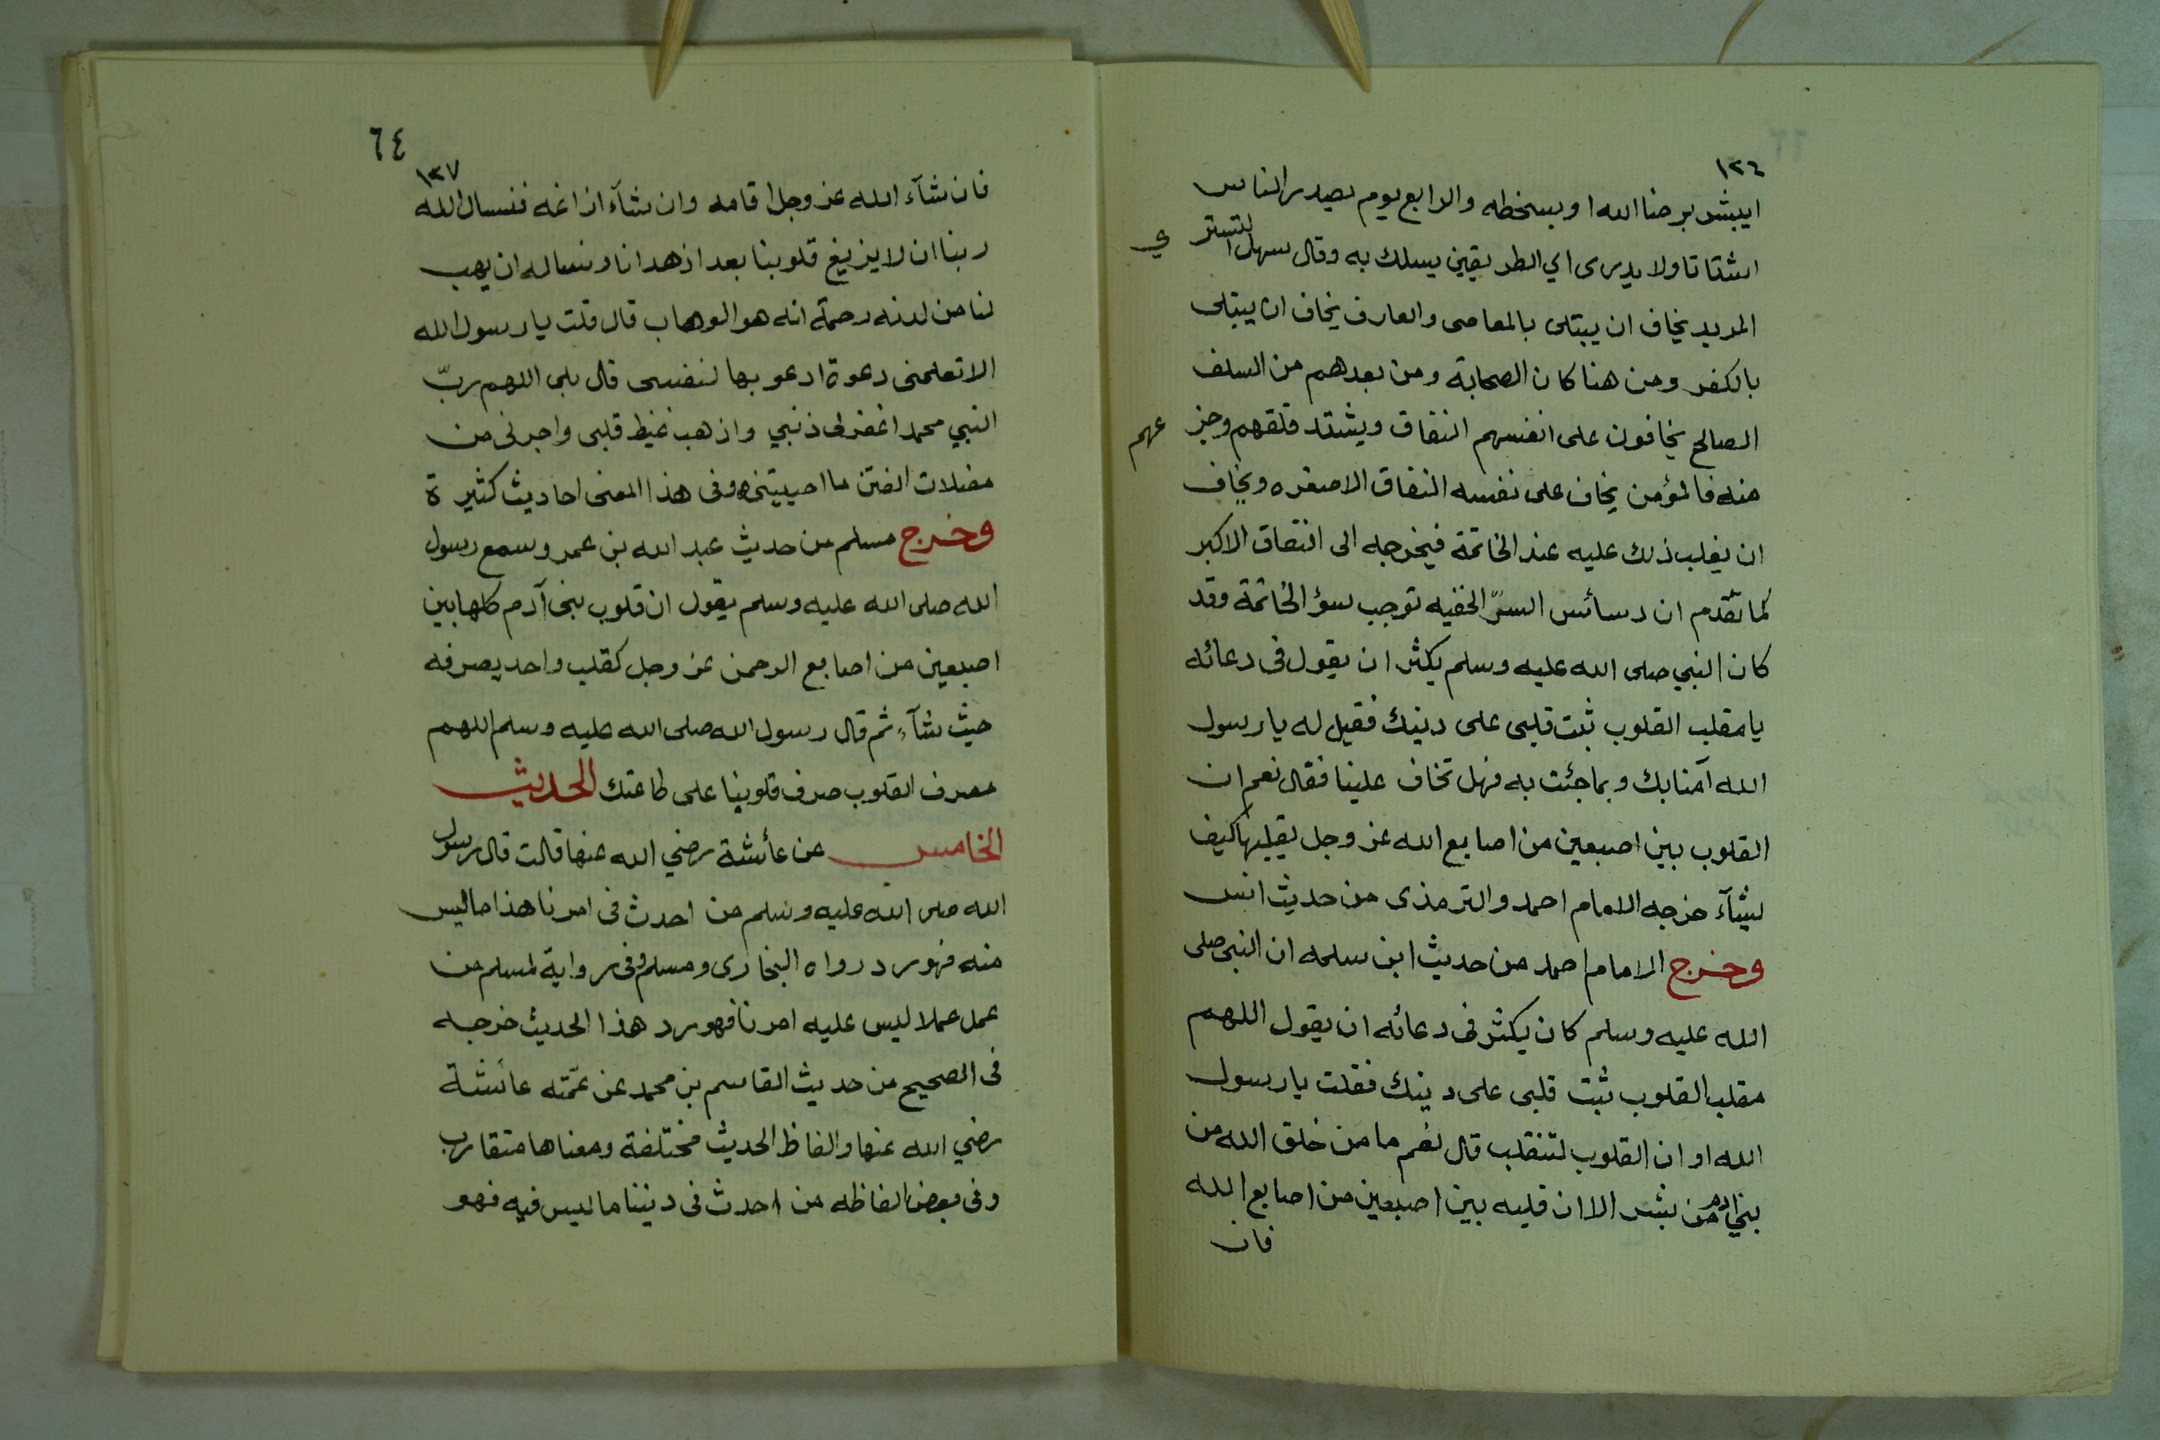 ١٢٦
ايبشر برضا الله او بسخطه والرابع يوم يصدر الناس
اشتاتا ولا يدرى اي الطريقين يسلك به وقال سهل التستر
ي
المريد يخاف ان يبتلى بالمعاصى والعارف يخاف ان يبتلى
بالكفر ومن هنا كان الصحابة ومن بعدهم من السلف
الصالح يخافون على انفسهم النفاق ويشتد قلقهم وجز
عهم
منه فالمؤمن يخاف على نفسه النفاق الاصغره ويخاف
ان يغلب ذلك عليه عند الخاتمة فيخرجه الى النفاق الاكبر
كما تقدم ان دسائس السرّ الخفيه توجب سؤ الخاتمة وقد
كان النبي صلى الله عليه وسلم يكثر ان يقول فى دعائه
يا مقلب القلوب ثبت قلبى على دينك فقيل له يا رسول
الله آمنا بك وبما جئت به فهل تخاف علينا فقال نعم ان
القلوب بين اصبعين من اصابع الله عز وجل يقلبها كيف
يشآء خرجه الامام احمد والترمذى من حديث انس
وخرج الامام احمد من حديث ابن سلمه ان النبى صلى
الله عليه وسلم كان يكثر فى دعائه ان يقول اللهم
مقلب القلوب ثبت قلبى على دينك فقلت يا رسول
الله او ان القلوب لتنقلب قال نعم ما من خلق الله من
بنى ادم من بشر الا ان قلبه بين اصبعين من اصابع الله
فان
٦٤
١٢٧
فان شآء الله عز وجل اقامه وان شآء ازاغه فنسال الله
ربنا ان لا يزيغ قلوبنا بعد اذ هدانا ونساله ان يهب
لنا من لدنه رحمة انه هو الوهاب قال قلت يا رسول الله
الا تعلمنى دعوة ادعو بها لنفسى قال بلى اللهم ربّ
النبي محمد اغفر لى ذنبي واذهب غيظ قلبى واجرنى من
مضلات الفتن ما احييتنى وفى هذا المعنى احاديث كثيرة
وخرج مسلم من حديث عبد الله بن عمر وسمع رسول
الله صلى الله عليه وسلم يقول ان قلوب بنى آدم كلها بين
اصبعين من اصابع الرحمن عز وجل كقلب واحد يصرفه
حيث شآء ثم قال رسول الله صلى الله عليه وسلم اللهم
مصرف القلوب صرف قلوبنا على طاعتك الحديث
الخامس عن عائشة رضي الله عنها قالت قال رسول
الله صلى الله عليه وسلم من احدث فى امرنا هذا ما ليس
منه فهو رد رواه البخارى ومسلم وفى رواية لمسلم من
عمل عملا ليس عليه امرنا فهو رد هذا الحديث خرجه
فى الصحيح من حديث القاسم بن محمد عن عمّته عائشة
رضي الله عنها والفاظ الحديث مختلفة ومعناها متقارب
وفى بعض الفاظه من احدث فى ديننا ما ليس فيه فهو